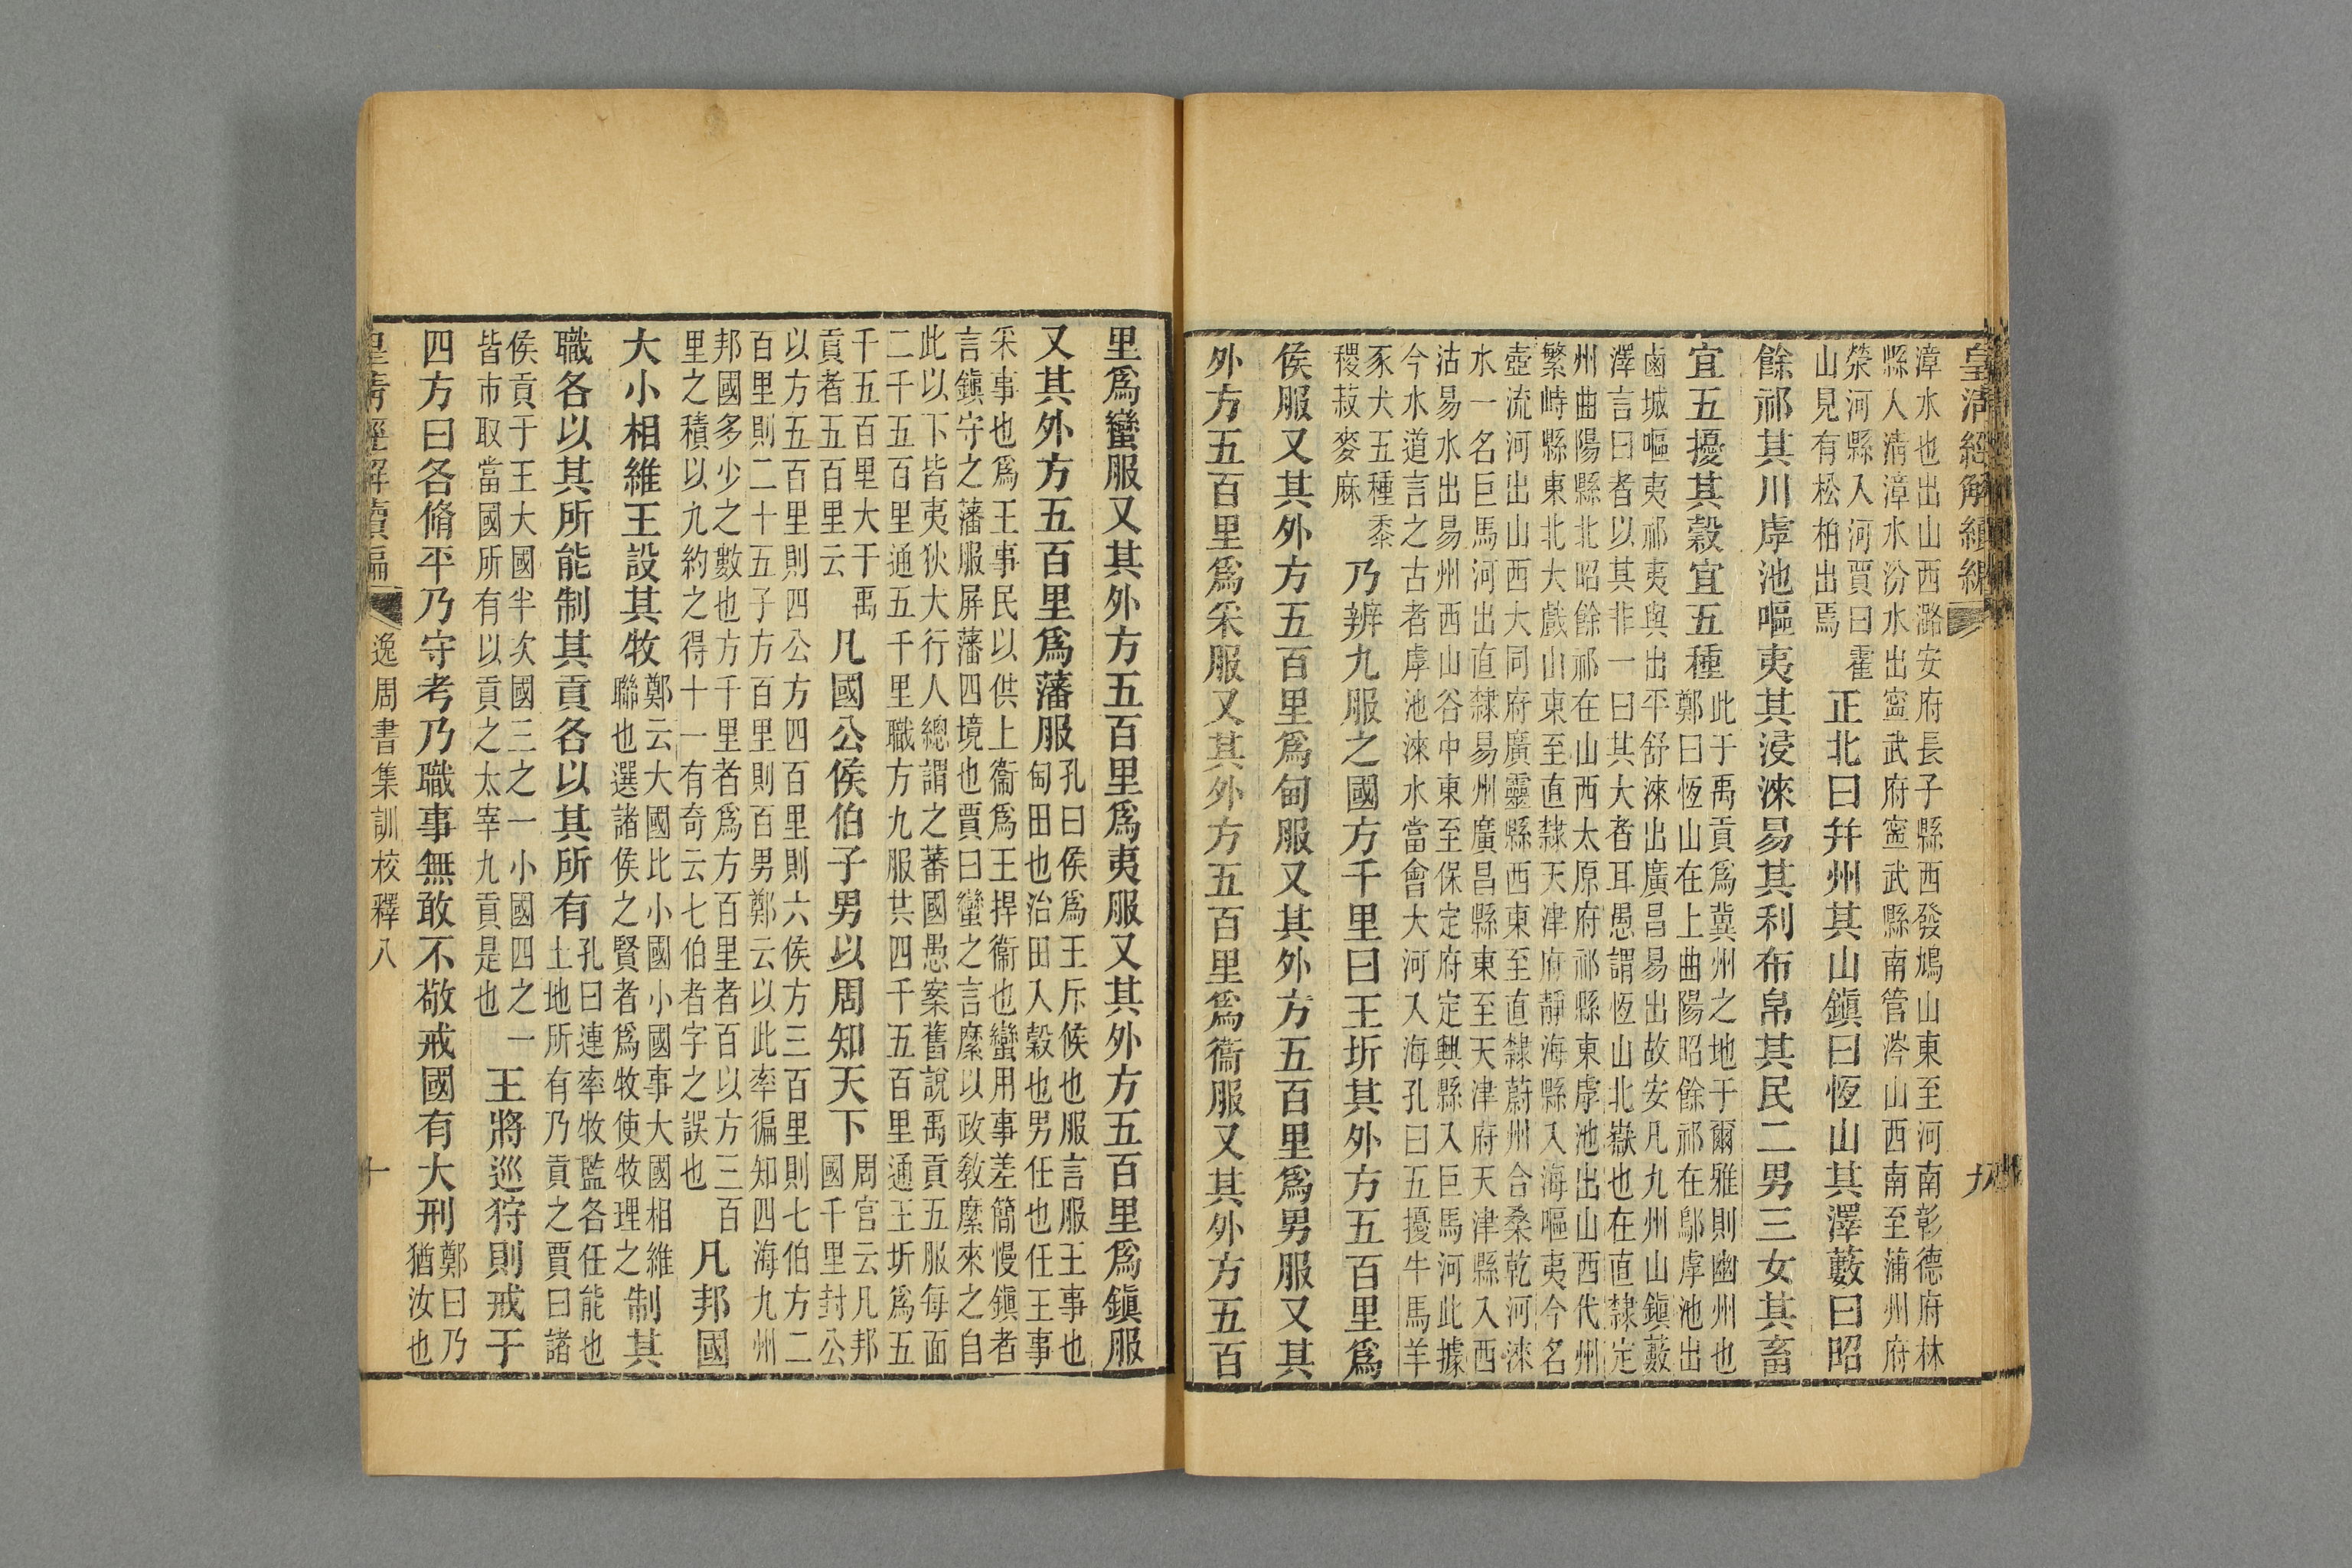 皇清經解續編
九
漳水也出山西潞安府長子縣西發鳩山東至河南彰德府林
縣入淸漳水汾水出寍武府寍武縣南管涔山西南至蒲州府
滎河縣入河賈曰霍
山見有松柏出焉
正北曰幷州其山鎭曰恆山其澤藪曰昭
餘祁其川虖池嘔夷其浸淶易其利布帛其民二男三女其畜
宜五擾其穀宜五種
此于禹貢爲冀州之地于爾雅則幽州也
鄭曰恆山在上曲陽昭餘祁在鄔虖池出
鹵城嘔夷祁夷與出平舒淶出廣昌易出故安凡九州山鎭藪
澤言曰者以其非一曰其大者耳愚謂恆山北嶽也在直隸定
州曲陽縣北昭餘祁在山西太原府祁縣東虖池出山西代州
繁峙縣東北大戲山東至直隸天津府靜海縣入海嘔夷今名
壺流河出山西大同府廣靈縣西東至直隸蔚州合桑乾河淶
水一名巨馬河出直隸易州廣昌縣東至天津府天津縣入西
沽易水出易州西山谷中東至保定府定興縣入巨馬河此據
今水道言之古者虖池淶水當會大河入海孔曰五擾牛馬羊
豕犬五種黍
稷菽麥麻
乃辨九服之國方千里曰王圻其外方五百里爲
侯服又其外方五百里爲甸服又其外方五百里爲男服又其
外方五百里爲采服又其外方五百里爲衞服又其外方五百
里爲蠻服又其外方五百里爲夷服又其外方五百里爲鎭服
又其外方五百里爲藩服
孔曰侯爲王斥候也服言服王事也
甸田也治田入穀也男任也任王事
采事也爲王事民以供上衞爲王捍衞也蠻用事差簡慢鎭者
言鎭守之藩服屏藩四境也賈曰蠻之言縻以政敎縻來之自
此以下皆夷狄大行人總謂之蕃國愚案舊說禹貢五服每面
二千五百里通五千里職方九服共四千五百里通王圻爲五
千五百里大于禹
貢者五百里云
凡國公侯伯子男以周知天下
周官云凡邦
國千里封公
以方五百里則四公方四百里則六侯方三百里則七伯方二
百里則二十五子方百里則百男鄭云以此率徧知四海九州
邦國多少之數也方千里者爲方百里者百以方三百
里之積以九約之得十一有奇云七伯者字之誤也
凡邦國
大小相維王設其牧
鄭云大國比小國小國事大國相維
聯也選諸侯之賢者爲牧使牧理之
制其
職各以其所能制其貢各以其所有
孔曰連率牧監各任能也
土地所有乃貢之賈曰諸
侯貢于王大國半次國三之一小國四之一
皆市取當國所有以貢之太宰九貢是也
王將巡狩則戒于
四方曰各脩平乃守考乃職事無敢不敬戒國有大刑
鄭曰乃
猶汝也
皇淸經解續編
逸周書集訓校釋八
十